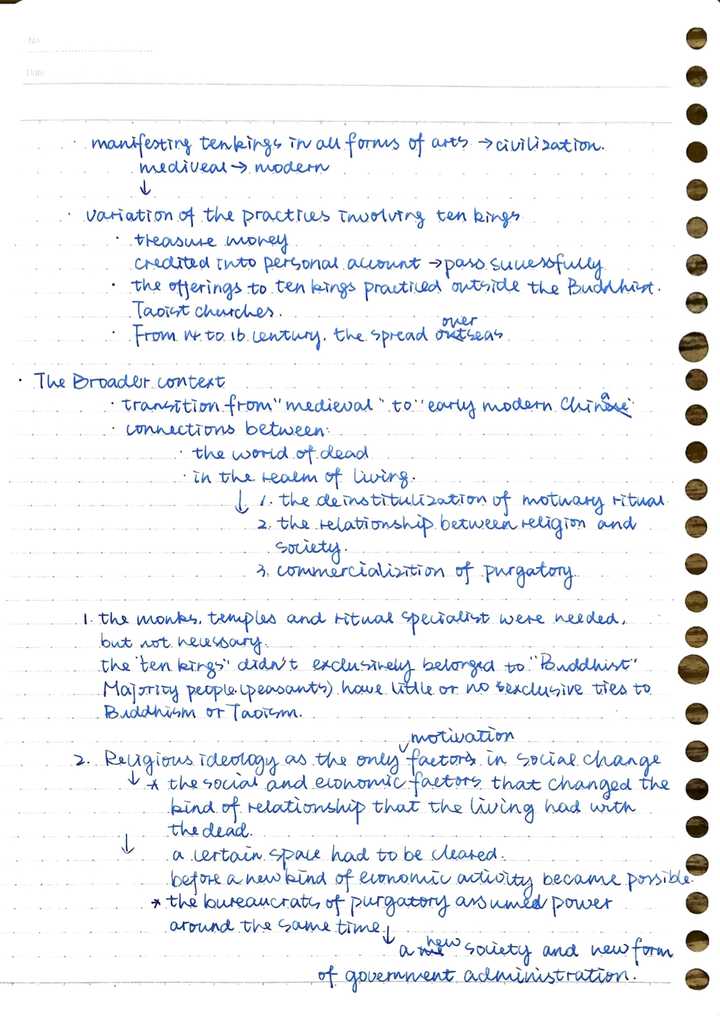 No.
Date
· manifesting ten kings in all forms of arts → civilization.
mediveal → modern
↓
· variation of the practices involving ten kings
· treasure money
credited into personal account → pass successfully
· the offerings to ten kings practiced outside the Buddhist.
Taoist churches.
over
· From 14 to 16 century. the spread outseas
· The Broader context
· transition from "medieval" to "early modern China"
· connections between:
· the world of dead
· in the realm of living.
↓ 1. the deinstitulization of motuary ritual
2. the relationship between religion and
society.
3. commercializition of purgatory
1. the monks, temples and ritual specialist were needed,
but not necessary.
the "ten kings" didn't exclusively belonged to "Buddhist"
Majority people (peasants) have little or no exclusive ties to
Buddhism or Taoism.
motivation
2. Religious ideology as the only factors in social change
↓ * the social and economic factors that changed the
kind of relationship that the living had with
the dead.
↓ a certain space had to be cleared.
before a new kind of economic activity became possible.
* the bureaucrats of purgatory assumed power
around the same time ↓
a new society and new form
of government administration.